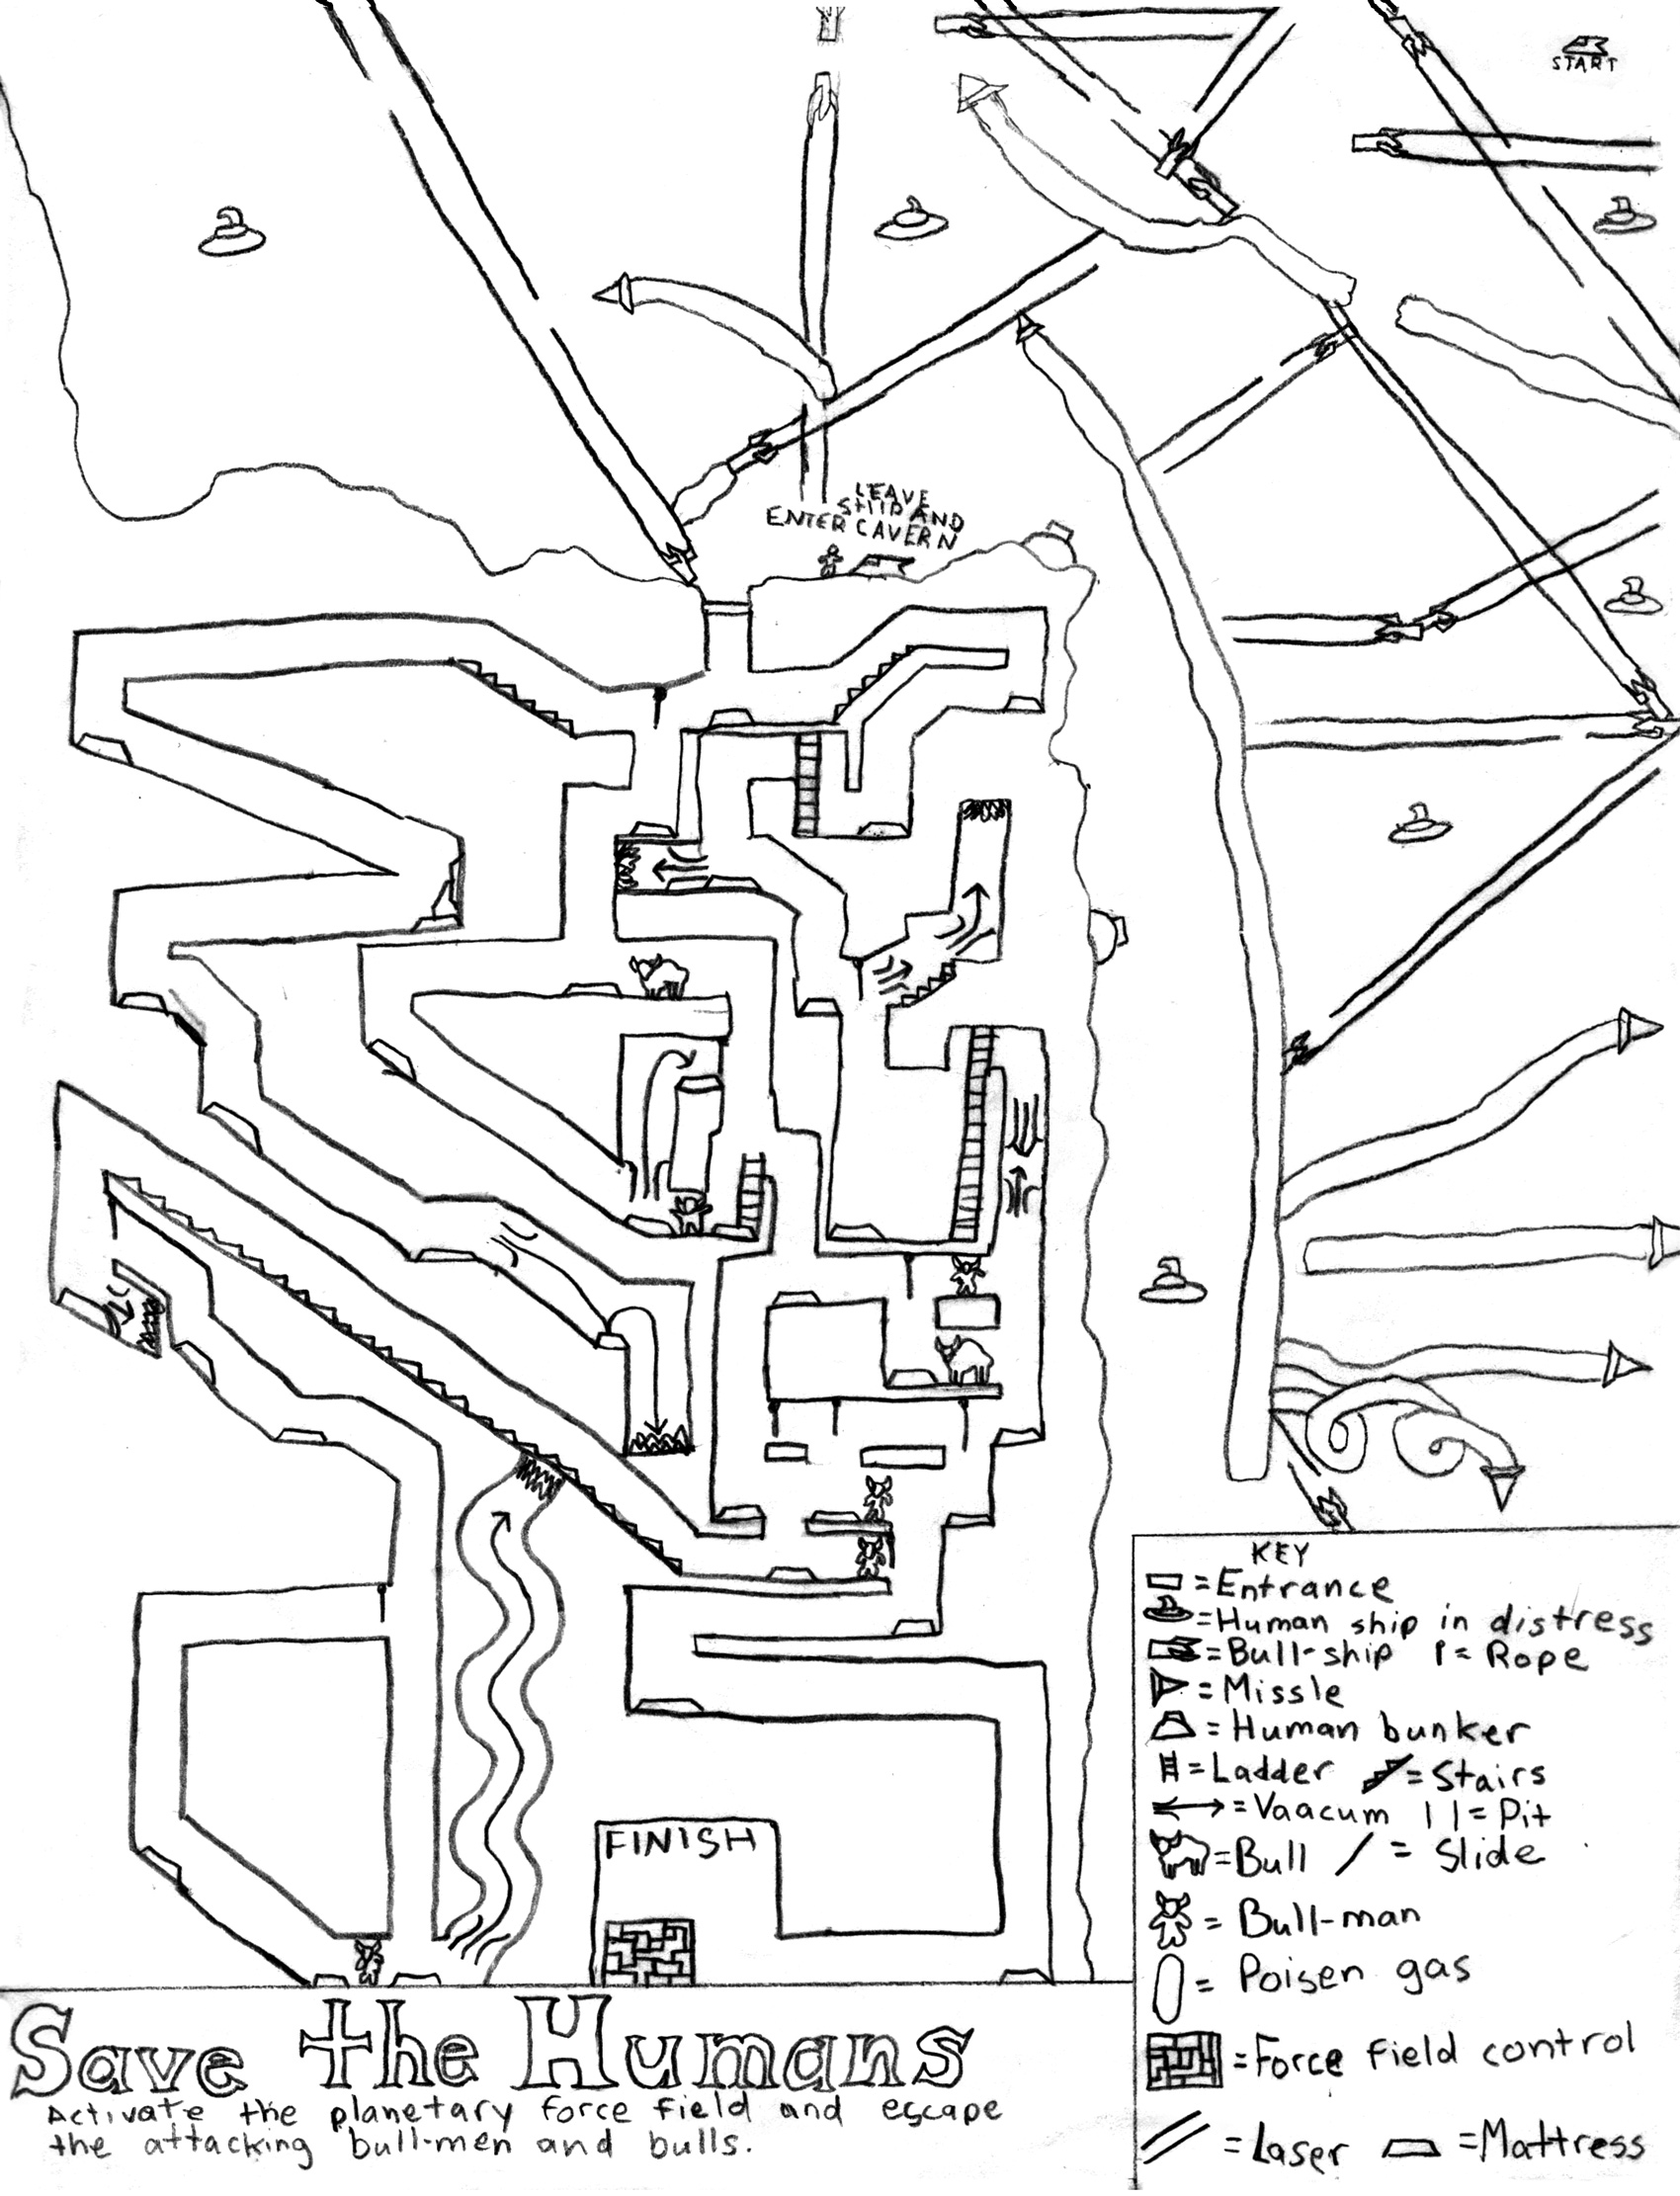 START
LEAVE
SHIP AND
ENTER CAVERN
FINISH
KEY
=Entrance
=Human ship in distress
=Bull-ship = Rope
=Missle
=Human bunker
=Ladder =Stairs
=Vaacum =Pit
=Bull = Slide
= Bull-man
= Poisen gas
=Force field control
=Laser =Mattress
Save the Humans
Activate the planetary force field and escape
the attacking bull-men and bulls.